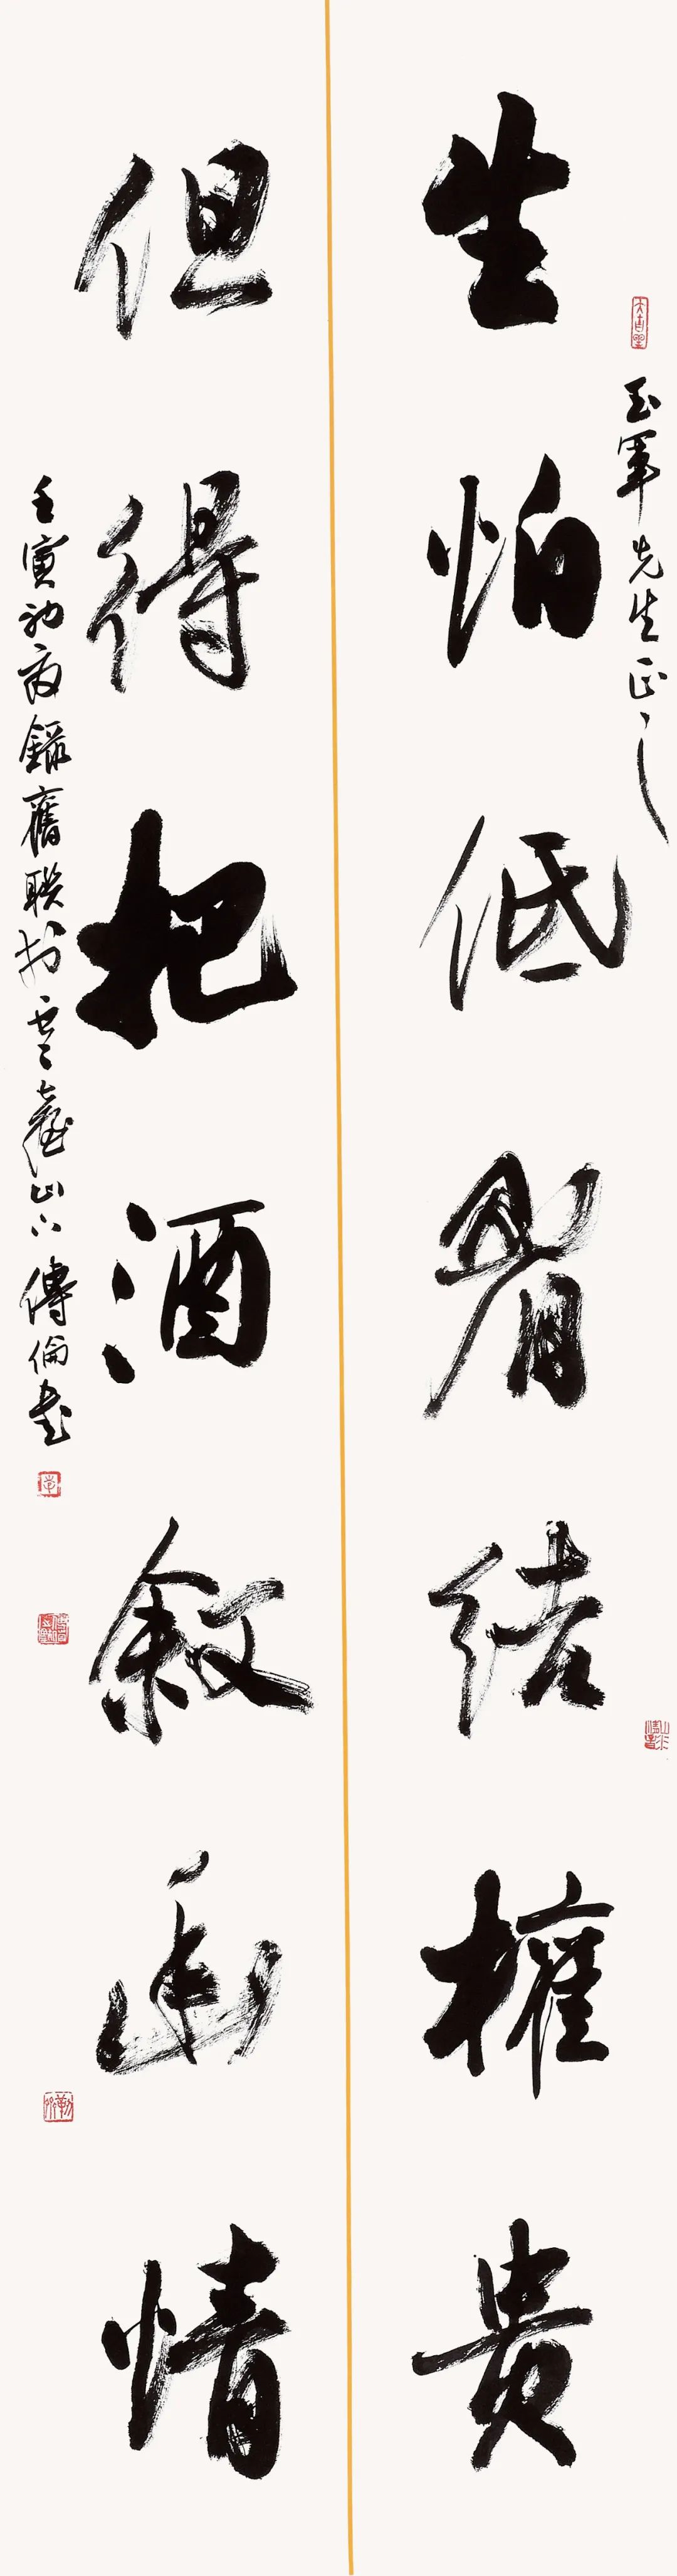 玉軍先生正之
生怕低眉結權貴
但得把酒敘幽情
壬寅初夜錄舊聯於雲臺山下傳倫書